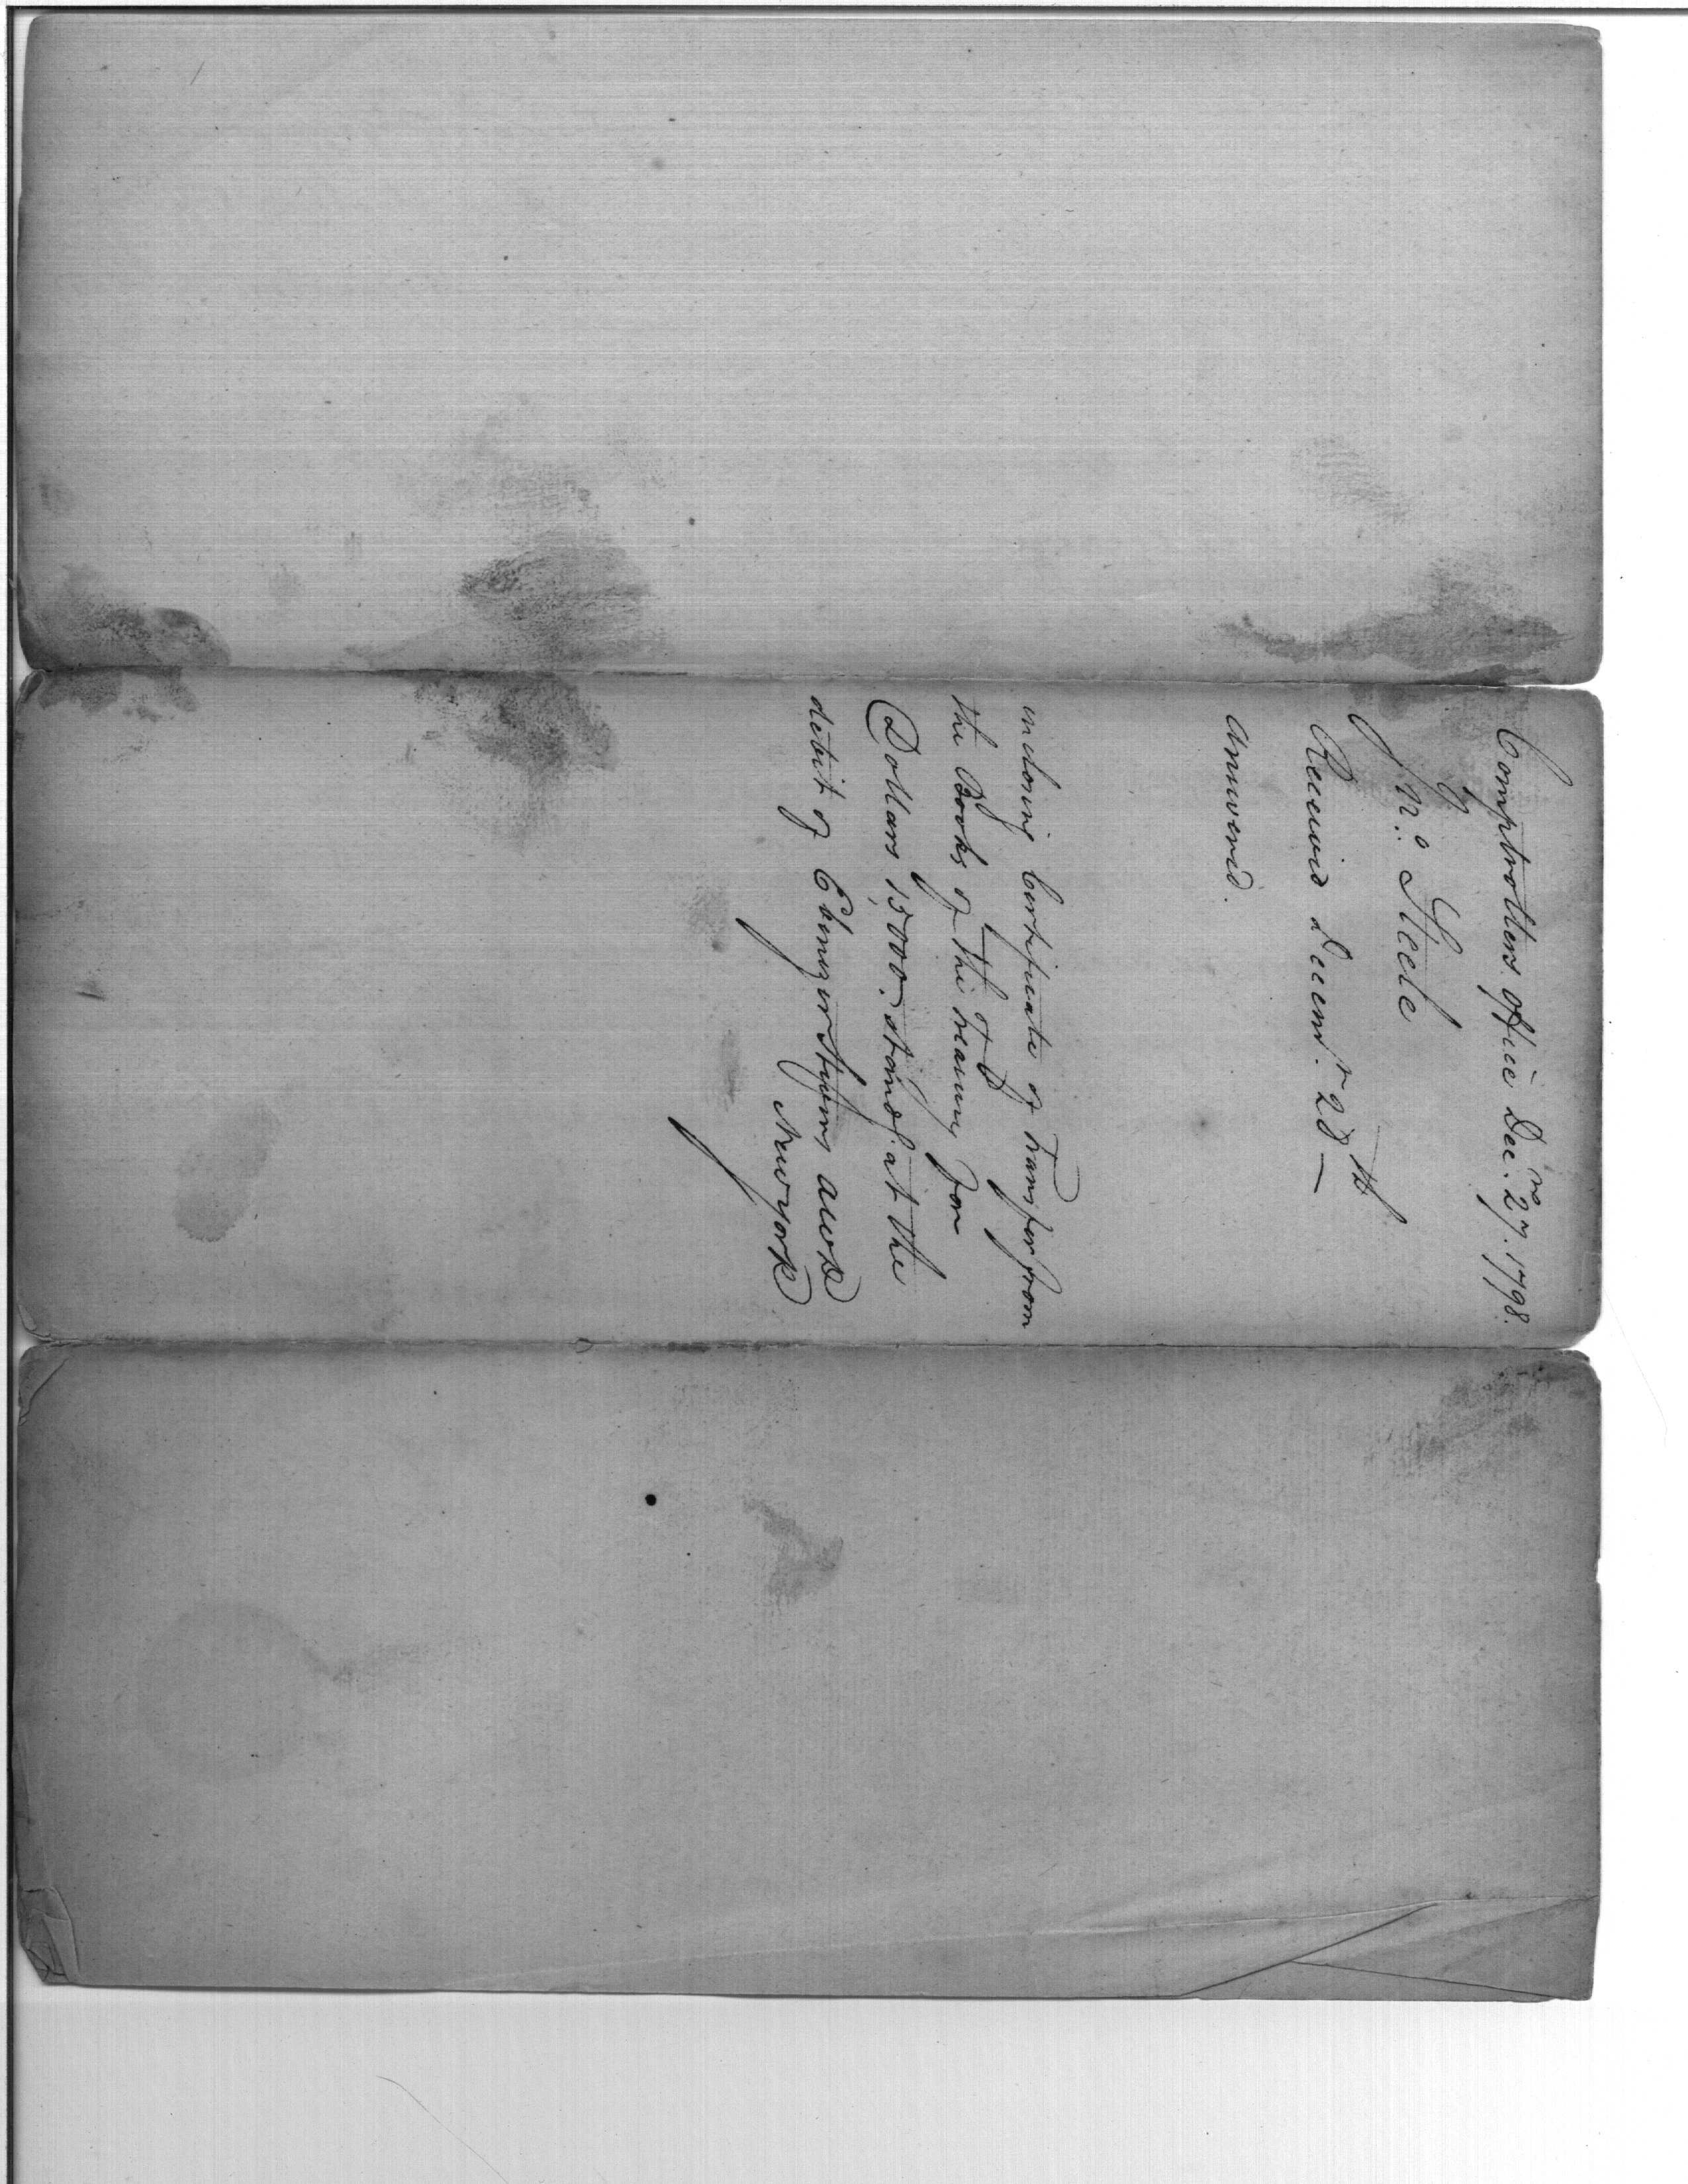 Comptrollers office Dec.ʳ 27. 1798.
Jn.º Steele
Received Decem.ʳ 28ᵗʰ —
Answered.
inclosing Certificate of Transfer from
the Books of the Treasury for
Dollars 15000. stand.ᵍ at the
debit of Ebenezer Stevens
Newyork